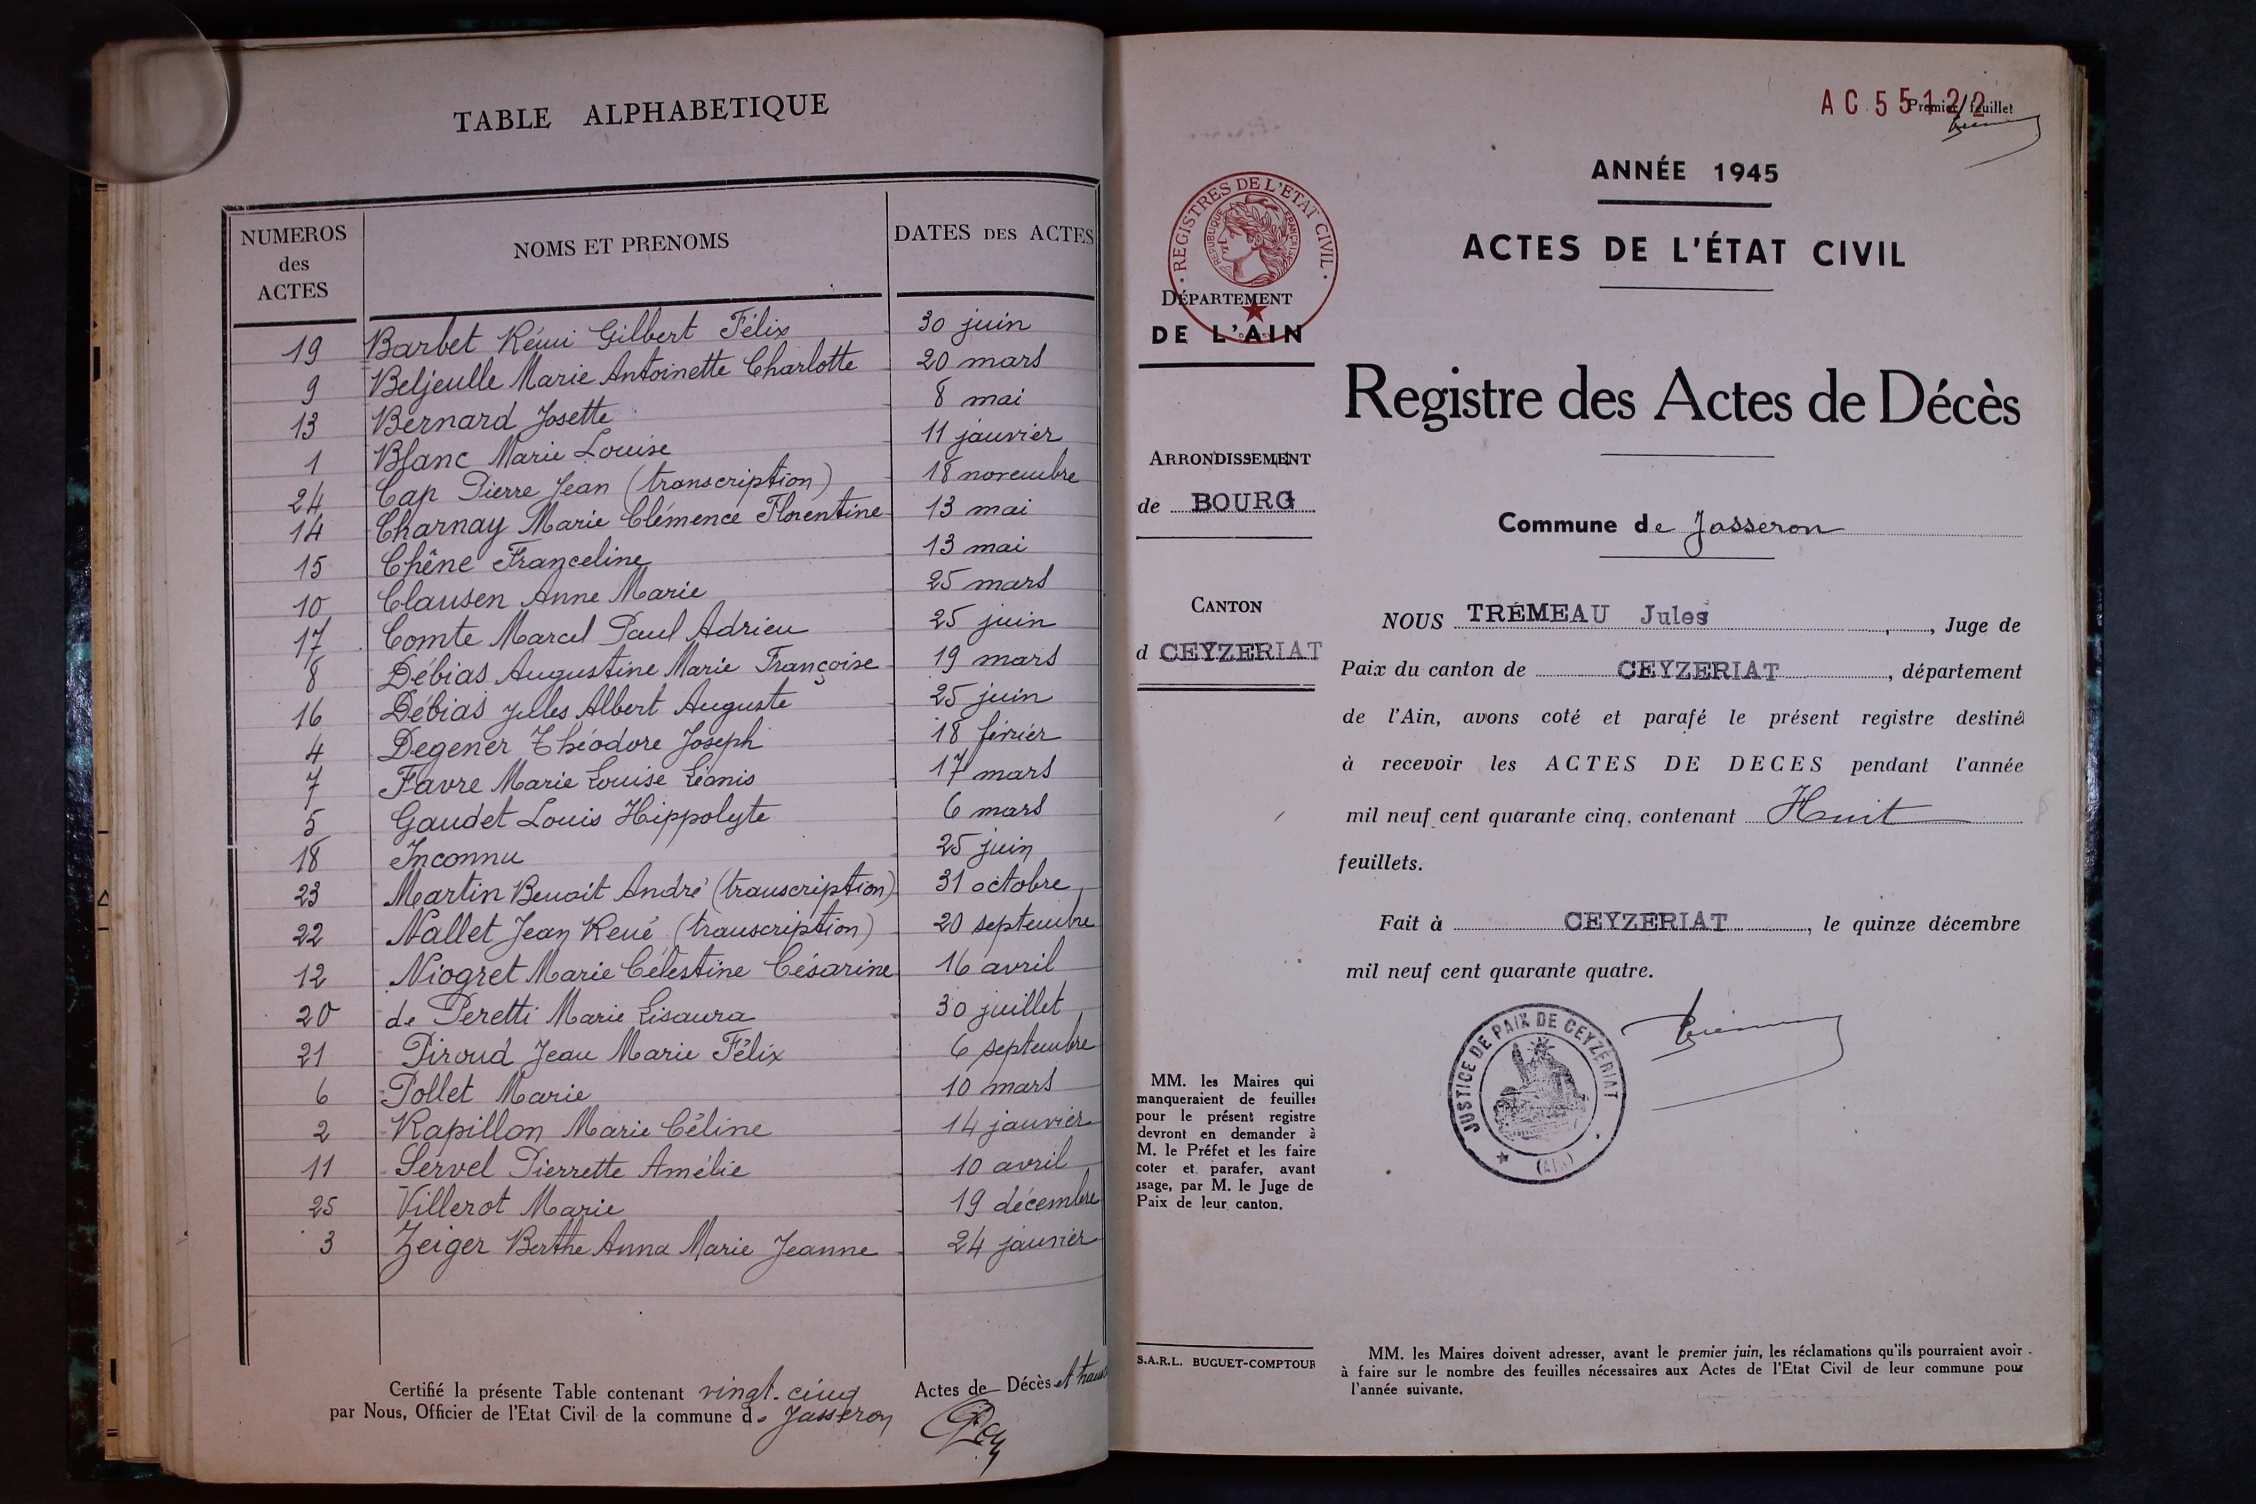 TABLE ALPHABETIQUE
NUMEROS des ACTES
NOMS ET PRENOMS
DATES DES ACTES
19 Barbet Rémi Gilbert Félix 30 juin
9 Beljeulle Marie Antoinette Charlotte 20 mars
13 Bernard Josette 8 mai
1 Blanc Marie Louise 11 janvier
24 Cap Pierre Jean (transcription) 18 novembre
14 Charnay Marie Clémence Florentine 13 mai
15 Chêne Franceline 13 mai
10 Clausen Anne Marie 25 mars
17 Comte Marcel Paul Adrien 25 juin
8 Débias Augustine Marie Françoise 19 mars
16 Débias Jules Albert Auguste 25 juin
4 Degener Théodore Joseph 18 février
7 Favre Marie Louise Léonis 17 mars
5 Gaudet Louis Hippolyte 6 mars
18 Inconnu 25 juin
23 Martin Benoit André (transcription) 31 octobre
22 Nallet Jean René (transcription) 20 septembre
12 Niogret Marie Célestine Césarine 16 avril
20 de Peretti Marie Lisaura 30 juillet
21 Piroud Jean Marie Félix 6 septembre
6 Pollet Marie 10 mars
2 Rapillon Marie Céline 14 janvier
11 Servel Pierrette Amélie 10 avril
25 Villerot Marie 19 décembre
3 Zeiger Berthe Anna Marie Jeanne 24 janvier
Certifié la présente Table contenant vingt-cinq Actes de Décès et
par Nous, Officier de l'Etat Civil de la commune de Jasseron
AC 55122
Premier feuillet
ANNÉE 1945
ACTES DE L'ÉTAT CIVIL
REGISTRES DE L'ETAT CIVIL
REPUBLIQUE FRANÇAISE
DÉPARTEMENT
DE L'AIN
Registre des Actes de Décès
ARRONDISSEMENT
de BOURG
Commune de Jasseron
CANTON
d CEYZERIAT
NOUS TRÉMEAU Jules, Juge de
Paix du canton de CEYZERIAT, département
de l'Ain, avons coté et parafé le présent registre destiné
à recevoir les ACTES DE DECES pendant l'année
mil neuf cent quarante cinq, contenant Huit
feuillets.
Fait à CEYZERIAT, le quinze décembre
mil neuf cent quarante quatre.
JUSTICE DE PAIX DE CEYZÉRIAT
(AIN)
MM. les Maires qui
manqueraient de feuilles
pour le présent registre
devront en demander à
M. le Préfet et les faire
coter et parafer, avant
usage, par M. le Juge de
Paix de leur canton.
S.A.R.L. BUGUET-COMPTOUR
MM. les Maires doivent adresser, avant le premier juin, les réclamations qu'ils pourraient avoir
à faire sur le nombre des feuilles nécessaires aux Actes de l'Etat Civil de leur commune pour
l'année suivante.